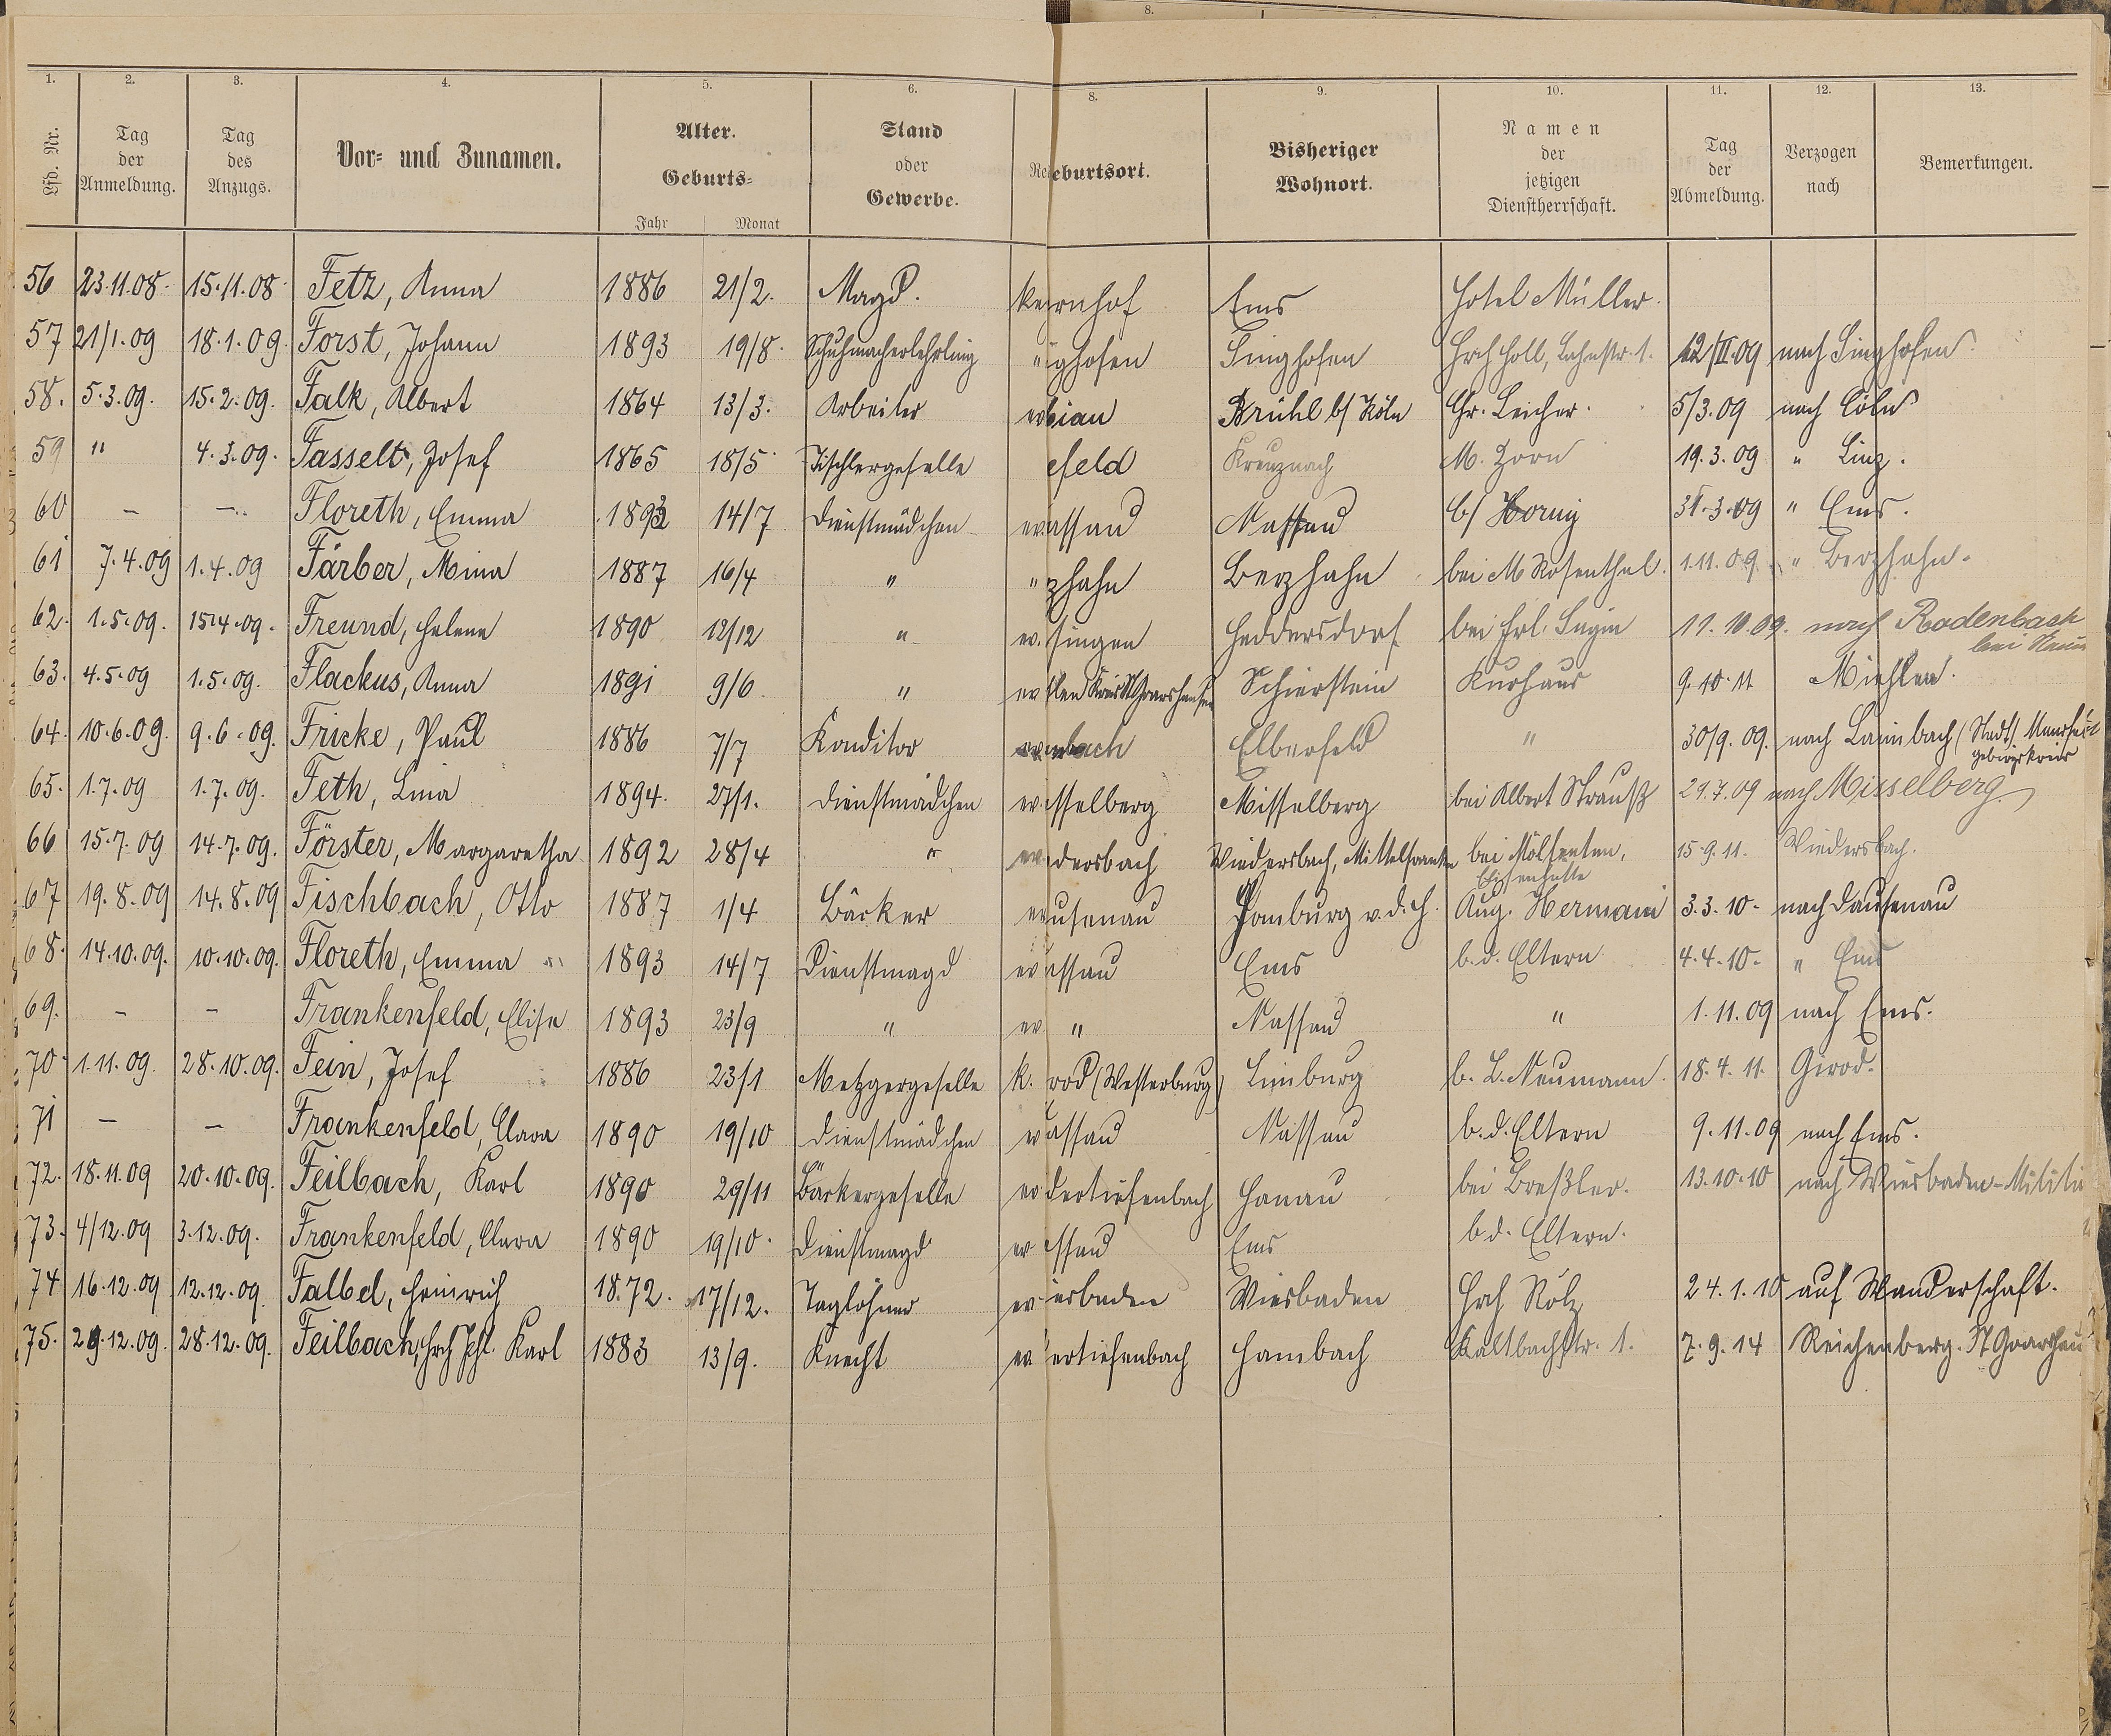 8.
1. 2. 3. 4. 5. 6. 8. 9. 10. 11. 12. 13.
Lfd. Nr. Tag der Anmeldung. Tag des Anzugs. Vor- und Zunamen. Alter. Geburts- Jahr Monat Stand oder Gewerbe. Re eburtsort. Bisheriger Wohnort. Namen der jetzigen Dienstherrschaft. Tag der Abmeldung. Verzogen nach Bemerkungen.
56 23.11.08. 15.11.08. Fetz, Anna 1886 21/2. Magd. k rnhof Ems Hotel Müller.
57 21/1.09 18.1.09. Forst, Johann 1893 19/8. Schuhmacherlehrling " ighofen Singhofen Hrch Holl, Lahnstr. 1. 12/II.09 nach Singhofen
58. 5.3.09. 15.2.09. Falk, Albert 1864 13/3. Arbeiter ev bian Brühl b/ Köln Chr. Leicher. 5/3.09 nach Cöln
59 " 4.3.09. Fasselt, Josef 1865 18/5. Tischlergeselle efeld Kreuznach M. Zorn 19.3.09 " Linz.
60 — — Floreth, Emma 1893 14/7 Dienstmädchen ev assau Nassau b/ Hornig 31.3.09 " Ems.
61 7.4.09 1.4.09 Färber, Mina 1887 16/4 " " zhahn Berzhahn bei M Rosenthal. 1.11.09. " Berzhahn.
62. 1.5.09. 15.4.09. Freund, Helene 1890 12/12 " ev. singen Heddersdorf bei Frl. 11.10.09. nach Radenbach
bei
63. 4.5.09 1.5.09. Flackus, Anna 1891 9/6. " ev hlen Kreis St Goarshausen Schierstein Kurhaus 9.10.11 Miehlen.
64. 10.6.09. 9.6.09. Fricke, Paul 1886 7/7 Konditor ev bach Elberfeld " 30/9.09. nach Laimbach (Stadt/ Mansfeld
gebirgskreis
65. 1.7.09 1.7.09. Feth, Lina 1894. 27/1. Dienstmädchen ev sselberg Misselberg bei Albert Strauß 29.7.09 nach Misselberg.
66 15.7.09 14.7.09. Förster, Margaretha 1892 28/4 " ev dersbach Wiedersbach, Mittelfranken bei 15.9.11. Wiedersbach.
Eisenhütte
67 19.8.09 14.8.09 Fischbach, Otto 1887 1/4 Bäcker ev usenau Homburg v.d.H. Aug. Hermani 3.3.10. nach Dausenau
68. 14.10.09. 10.10.09. Floreth, Emma 1893 14/7 Dienstmagd ev assau Ems b.d. Eltern 4.4.10. " Ems
69. — — Frankenfeld, Elise 1893 23/9 " ev " Nassau " 1.11.09 nach Ems.
70. 1.11.09. 28.10.09. Fein, Josef 1886 23/1 Metzgergeselle k. rod (Westerburg) Limburg b. L. Neumann. 18.4.11. Girod.
71 — — Frankenfeld, Clara 1890 19/10 Dienstmädchen ev assau Nassau b.d. Eltern 9.11.09 nach Ems.
72. 18.11.09 20.10.09. Feilbach, Karl 1890 29/11 Bäckergeselle ev dertiefenbach Hanau bei Breßler. 13.10.10 nach Wiesbaden-Militär
73. 4/12.09 3.12.09. Frankenfeld, Clara 1890 19/10. Dienstmagd ev ssau Ems b d. Eltern.
74 16.12.09 12.12.09. Falbel, Heinrich 1872. 17/12. Taglöhner ev iesbaden Wiesbaden Hrch Rölz 24.1.10 auf Wanderschaft.
75. 29.12.09. 28.12.09. Feilbach, Hrch Karl 1883 13/9. Knecht ev ertiefenbach Hambach Kaltbachstr. 1. 7.9.14 Reichenberg. St Goarshau